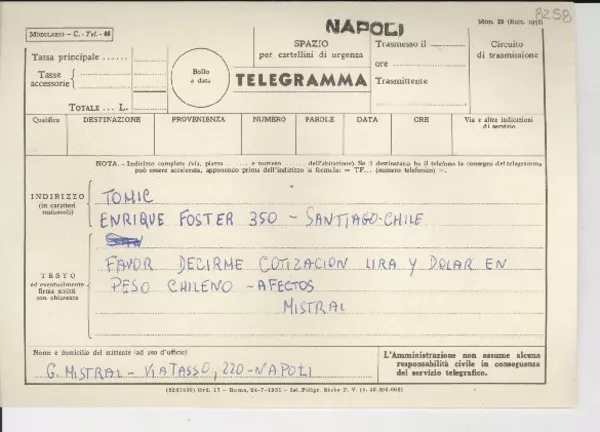 8258
MODULARIO - C. - Tel. - 46
NAPOLI
Mod. 25 (Ediz. 1951)
Tassa principale
Tasse accessorie
TOTALE ... L.
Bollo a data
SPAZIO
per cartellini di urgenza
TELEGRAMMA
Trasmesso il
ore
Trasmittente
Circuito di trasmissione
Qualifica DESTINAZIONE PROVENIENZA NUMERO PAROLE DATA ORE Via e altre indicazioni di servizio
NOTA. - Indirizzo completo (via, piazza ...... e numero ...... dell'abitazione). Se il destinatario ha il telefono la consegna del telegramma
può essere accelerata, apponendo prima dell'indirizzo la formula: = TF... (numero telefonico) =.
INDIRIZZO
(in caratteri maiuscoli)
TOMIC
ENRIQUE FOSTER 350 - SANTIAGO-CHILE
TESTO
ed eventualmente firma scritti con chiarezza
FAVOR DECIRME COTIZACION LIRA Y DOLAR EN
PESO CHILENO - AFECTOS
MISTRAL
Nome e domicilio del mittente (ad uso d'ufficio)
G. MISTRAL - VIA TASSO, 220 - NAPOLI
L'Amministrazione non assume alcuna responsabilità civile in conseguenza del servizio telegrafico.
Ord. 17 - Roma, 24-7-1951 - Ist. Poligr. Stato P. V.